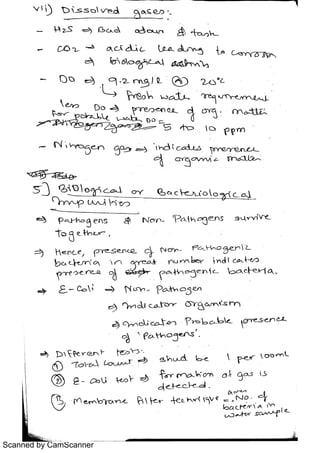 vii) Dissolved gases:-
- H2S ⇒ Bad odour & taste
- CO2 → acidic leading to corrosion
⇒ biological
- DO ⇒ 9.2 mg/l @ 20°C
↳ fresh water requirement
less DO ⇒ presence of org. matter
For potable water DO = 5 to 10 ppm
- Nitrogen gas ⇒ indicates presence
of organic matter
5) Biological or Bacteriological
impurities
⇒ pathogens & Non-Pathogens survive
together.
⇒ Hence, presence of Non-Pathogenic
bacteria in great number indicates
presence of pathogenic bacteria.
→ E-Coli → Non-Pathogen
⇒ Indicator organism
⇒ indicates Probable presence
of 'Pathogens'.
⇒ Different tests:-
① Total count ⇒ shud be 1 per 100ml
② E-coli test ⇒ formation of gas is
detected.
③ Membrane filter technique = gives No. of
bacteria in
water sample
Scanned by CamScanner